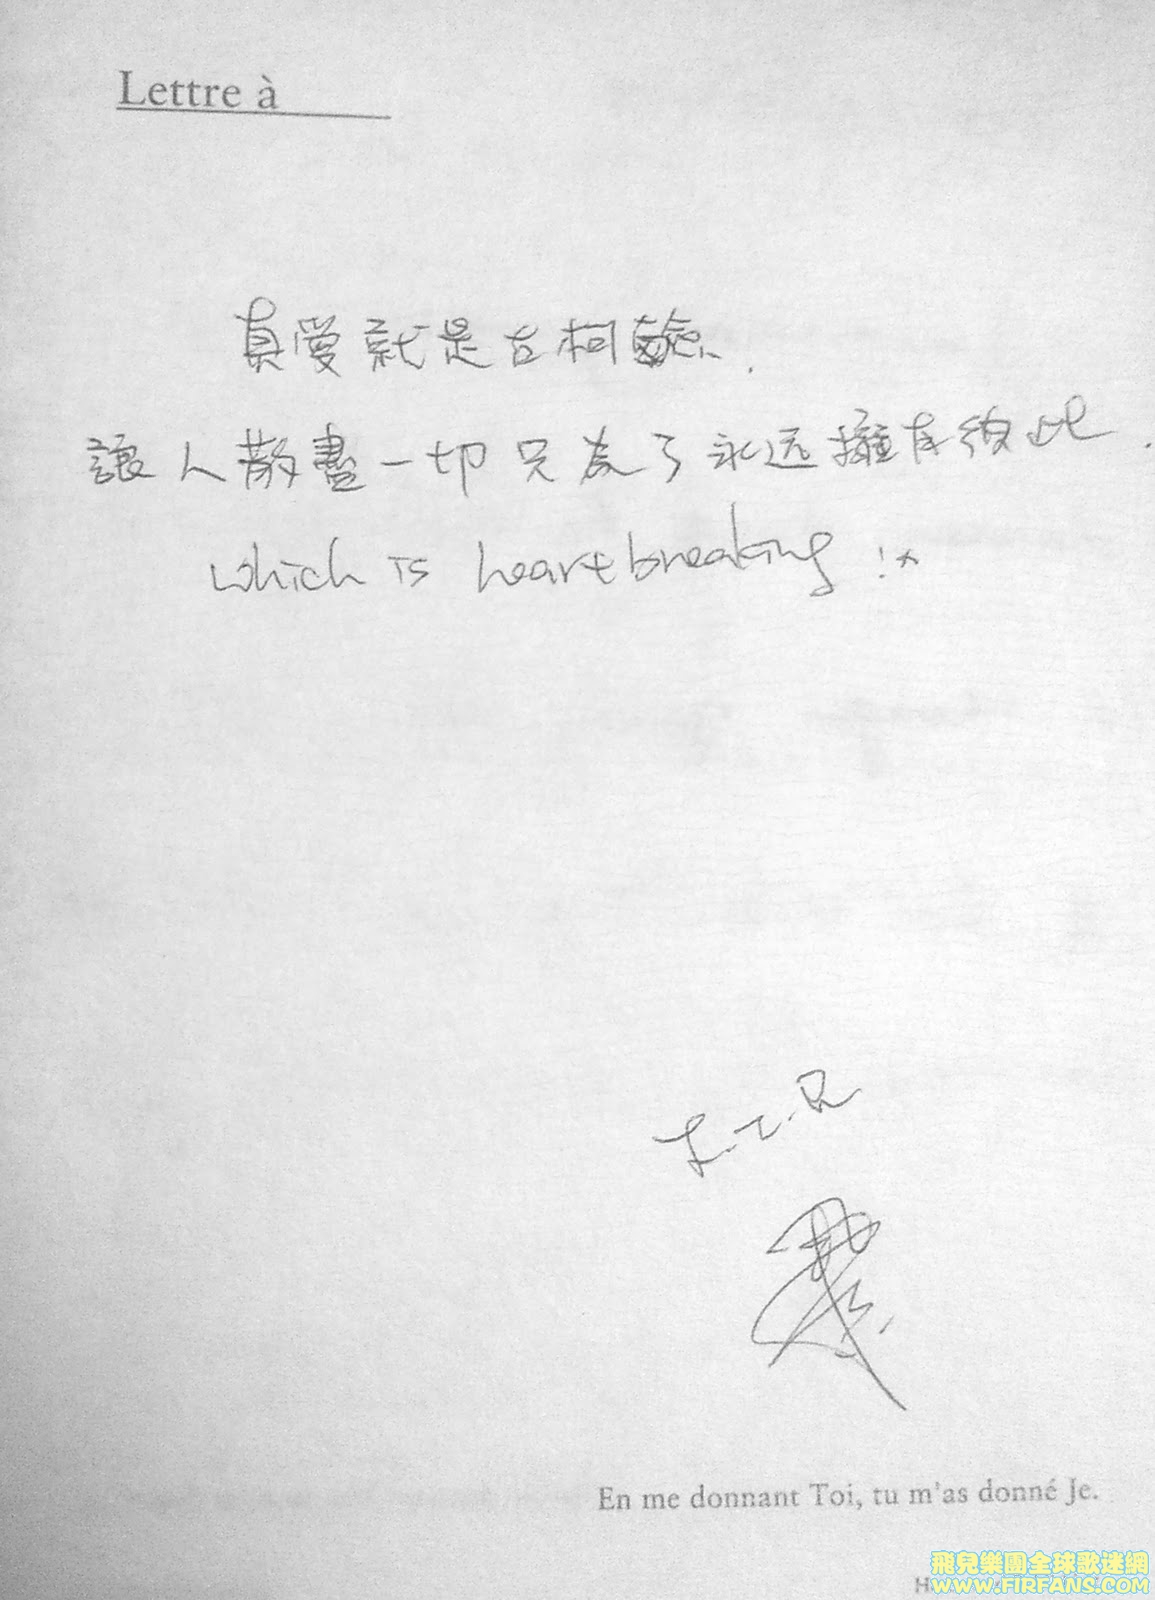 Lettre à
真愛就是古柯鹼、
讓人散盡一切只為了永远擁有彼此.
which is heartbreaking!
En me donnant Toi, tu m'as donné Je.
飛兒樂團全球歌迷網
WWW.FIRFANS.COM